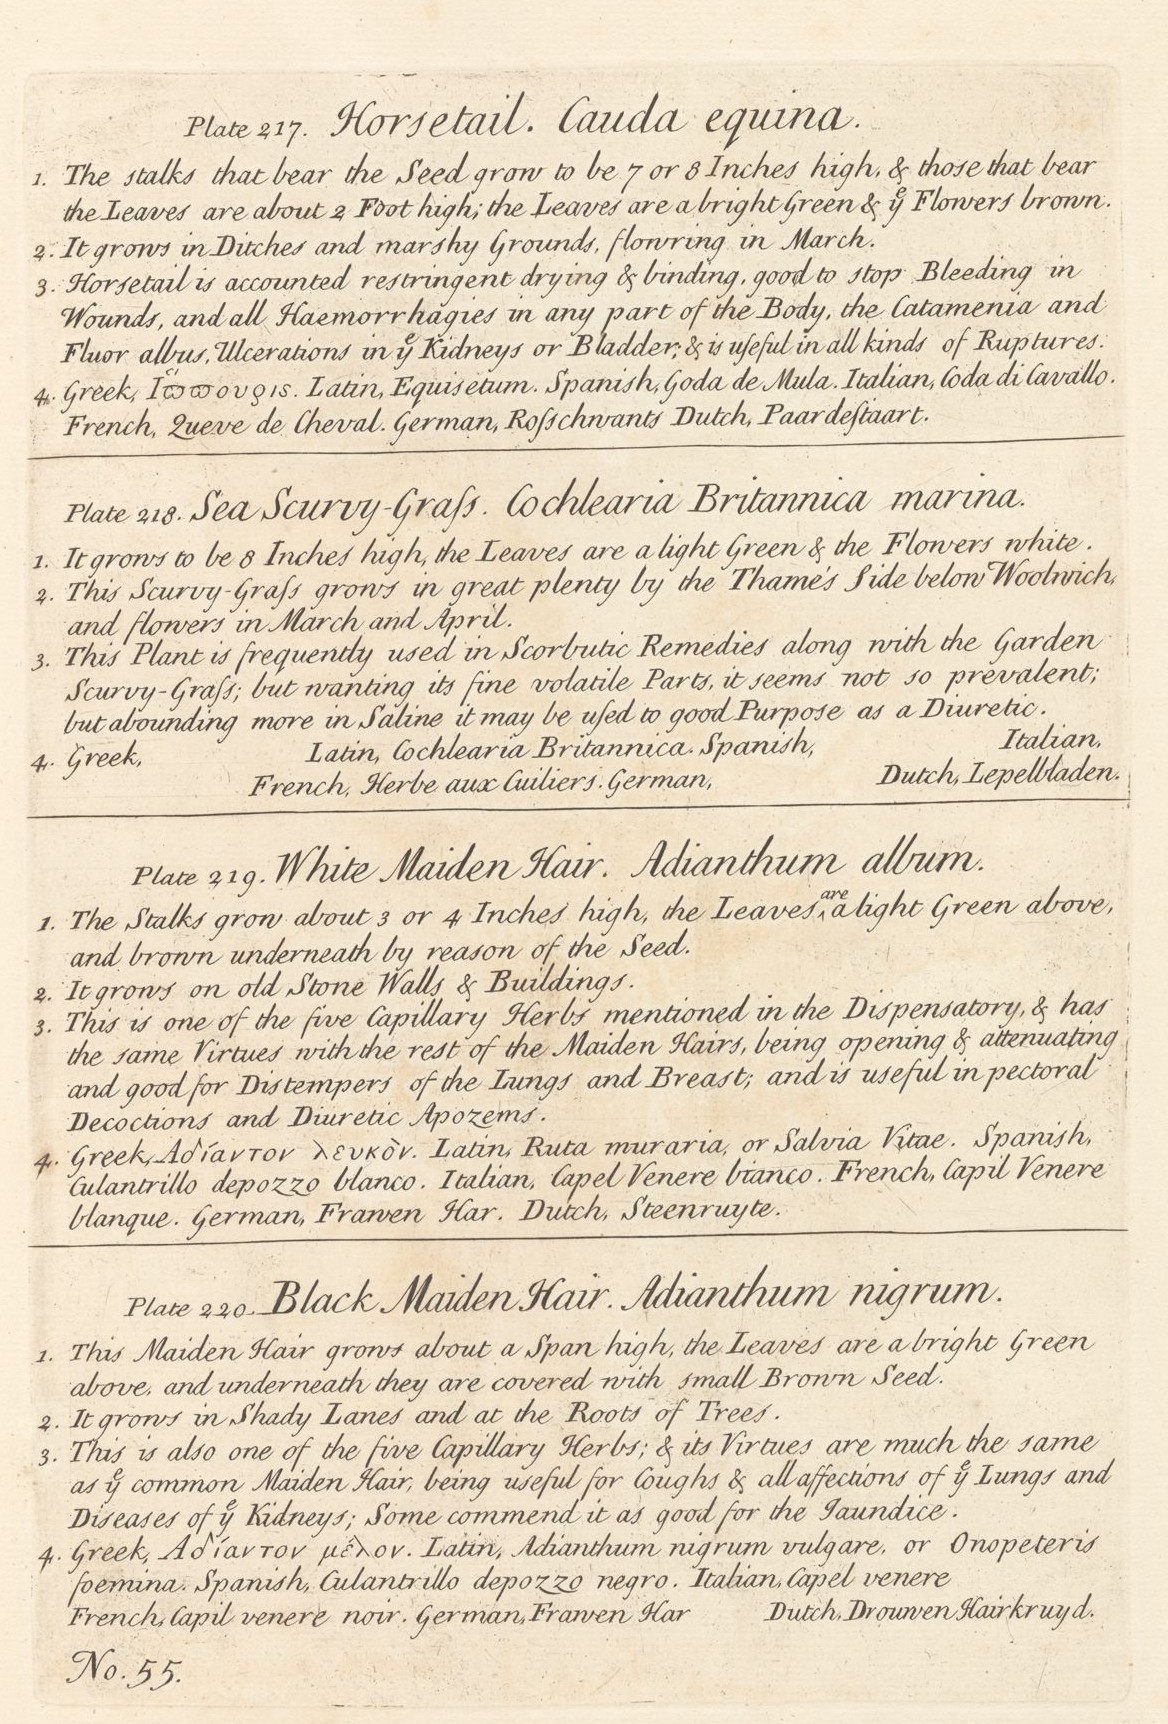 Plate 217. Horsetail. Cauda equina.
1. The stalks that bear the Seed grow to be 7 or 8 Inches high, & those that bear
the Leaves are about 2 Foot high; the Leaves are a bright Green & yͤ Flowers brown.
2. It grows in Ditches and marshy Grounds, flowring in March.
3. Horsetail is accounted restringent drying & binding, good to stop Bleeding in
Wounds, and all Haemorrhagies in any part of the Body, the Catamenia and
Fluor albus, Ulcerations in yͤ Kidneys or Bladder; & is uſeful in all kinds of Ruptures.
4. Greek, Ἵϖϖουρις. Latin, Equisetum. Spanish, Goda de Mula. Italian, Coda di Cavallo.
French, Queve de Cheval. German, Roſschwants Dutch, Paardeſtaart.
Plate 218. Sea Scurvy-Graſs. Cochlearia Britannica marina.
1. It grows to be 8 Inches high, the Leaves are a light Green & the Flowers white.
2. This Scurvy-Graſs grows in great plenty by the Thame's Side below Woolwich,
and flowers in March and April.
3. This Plant is frequently used in Scorbutic Remedies along with the Garden
Scurvy-Graſs; but wanting its fine volatile Parts, it seems not so prevalent;
but abounding more in Saline it may be uſed to good Purpose as a Diuretic.
4. Greek, Latin, Cochlearia Britannica. Spanish, Italian,
French, Herbe aux Cuiliers. German, Dutch, Lepelbladen.
Plate 219. White Maiden Hair. Adianthum album.
1. The Stalks grow about 3 or 4 Inches high, the Leaves, ‸are a light Green above,
and brown underneath by reason of the Seed.
2. It grows on old Stone Walls & Buildings.
3. This is one of the five Capillary Herbs mentioned in the Dispensatory, & has
the same Virtues with the rest of the Maiden Hairs, being opening & attenuating
and good for Distempers of the Lungs and Breast; and is useful in pectoral
Decoctions and Diuretic Apozems.
4. Greek, Αδίαντον λευκὸν. Latin, Ruta muraria, or Salvia Vitae. Spanish,
Culantrillo depozzo blanco. Italian, Capel Venere bianco. French, Capil Venere
blanque. German, Frawen Har. Dutch, Steenruyte.
Plate 220. Black Maiden Hair. Adianthum nigrum.
1. This Maiden Hair grows about a Span high, the Leaves are a bright Green
above, and underneath they are covered with small Brown Seed.
2. It grows in Shady Lanes and at the Roots of Trees.
3. This is also one of the five Capillary Herbs; & its Virtues are much the same
as yͤ common Maiden Hair, being useful for Coughs & all affections of yͤ Lungs and
Diseases of yͤ Kidneys; Some commend it as good for the Jaundice.
4. Greek, Αδίαντον μέλον. Latin, Adianthum nigrum vulgare, or Onopeteris
foemina. Spanish, Culantrillo depozzo negro. Italian, Capel venere
French, Capil venere noir. German, Frawen Har Dutch, Drouwen Hairkruyd.
No. 55.